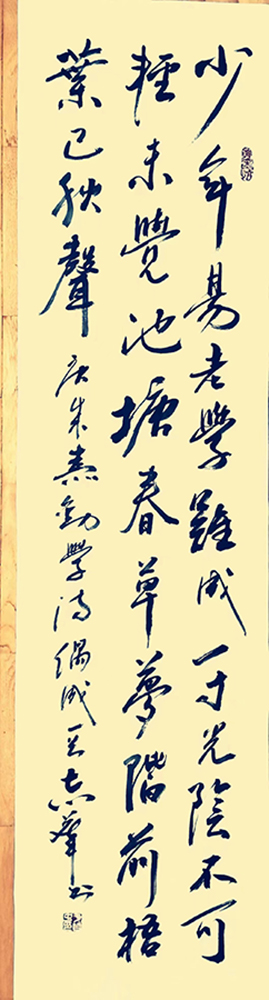 少年易老學難成一寸光陰不可
輕未覺池塘春草夢階前梧
葉已秋聲 朱熹勸學詩偶成 志 书